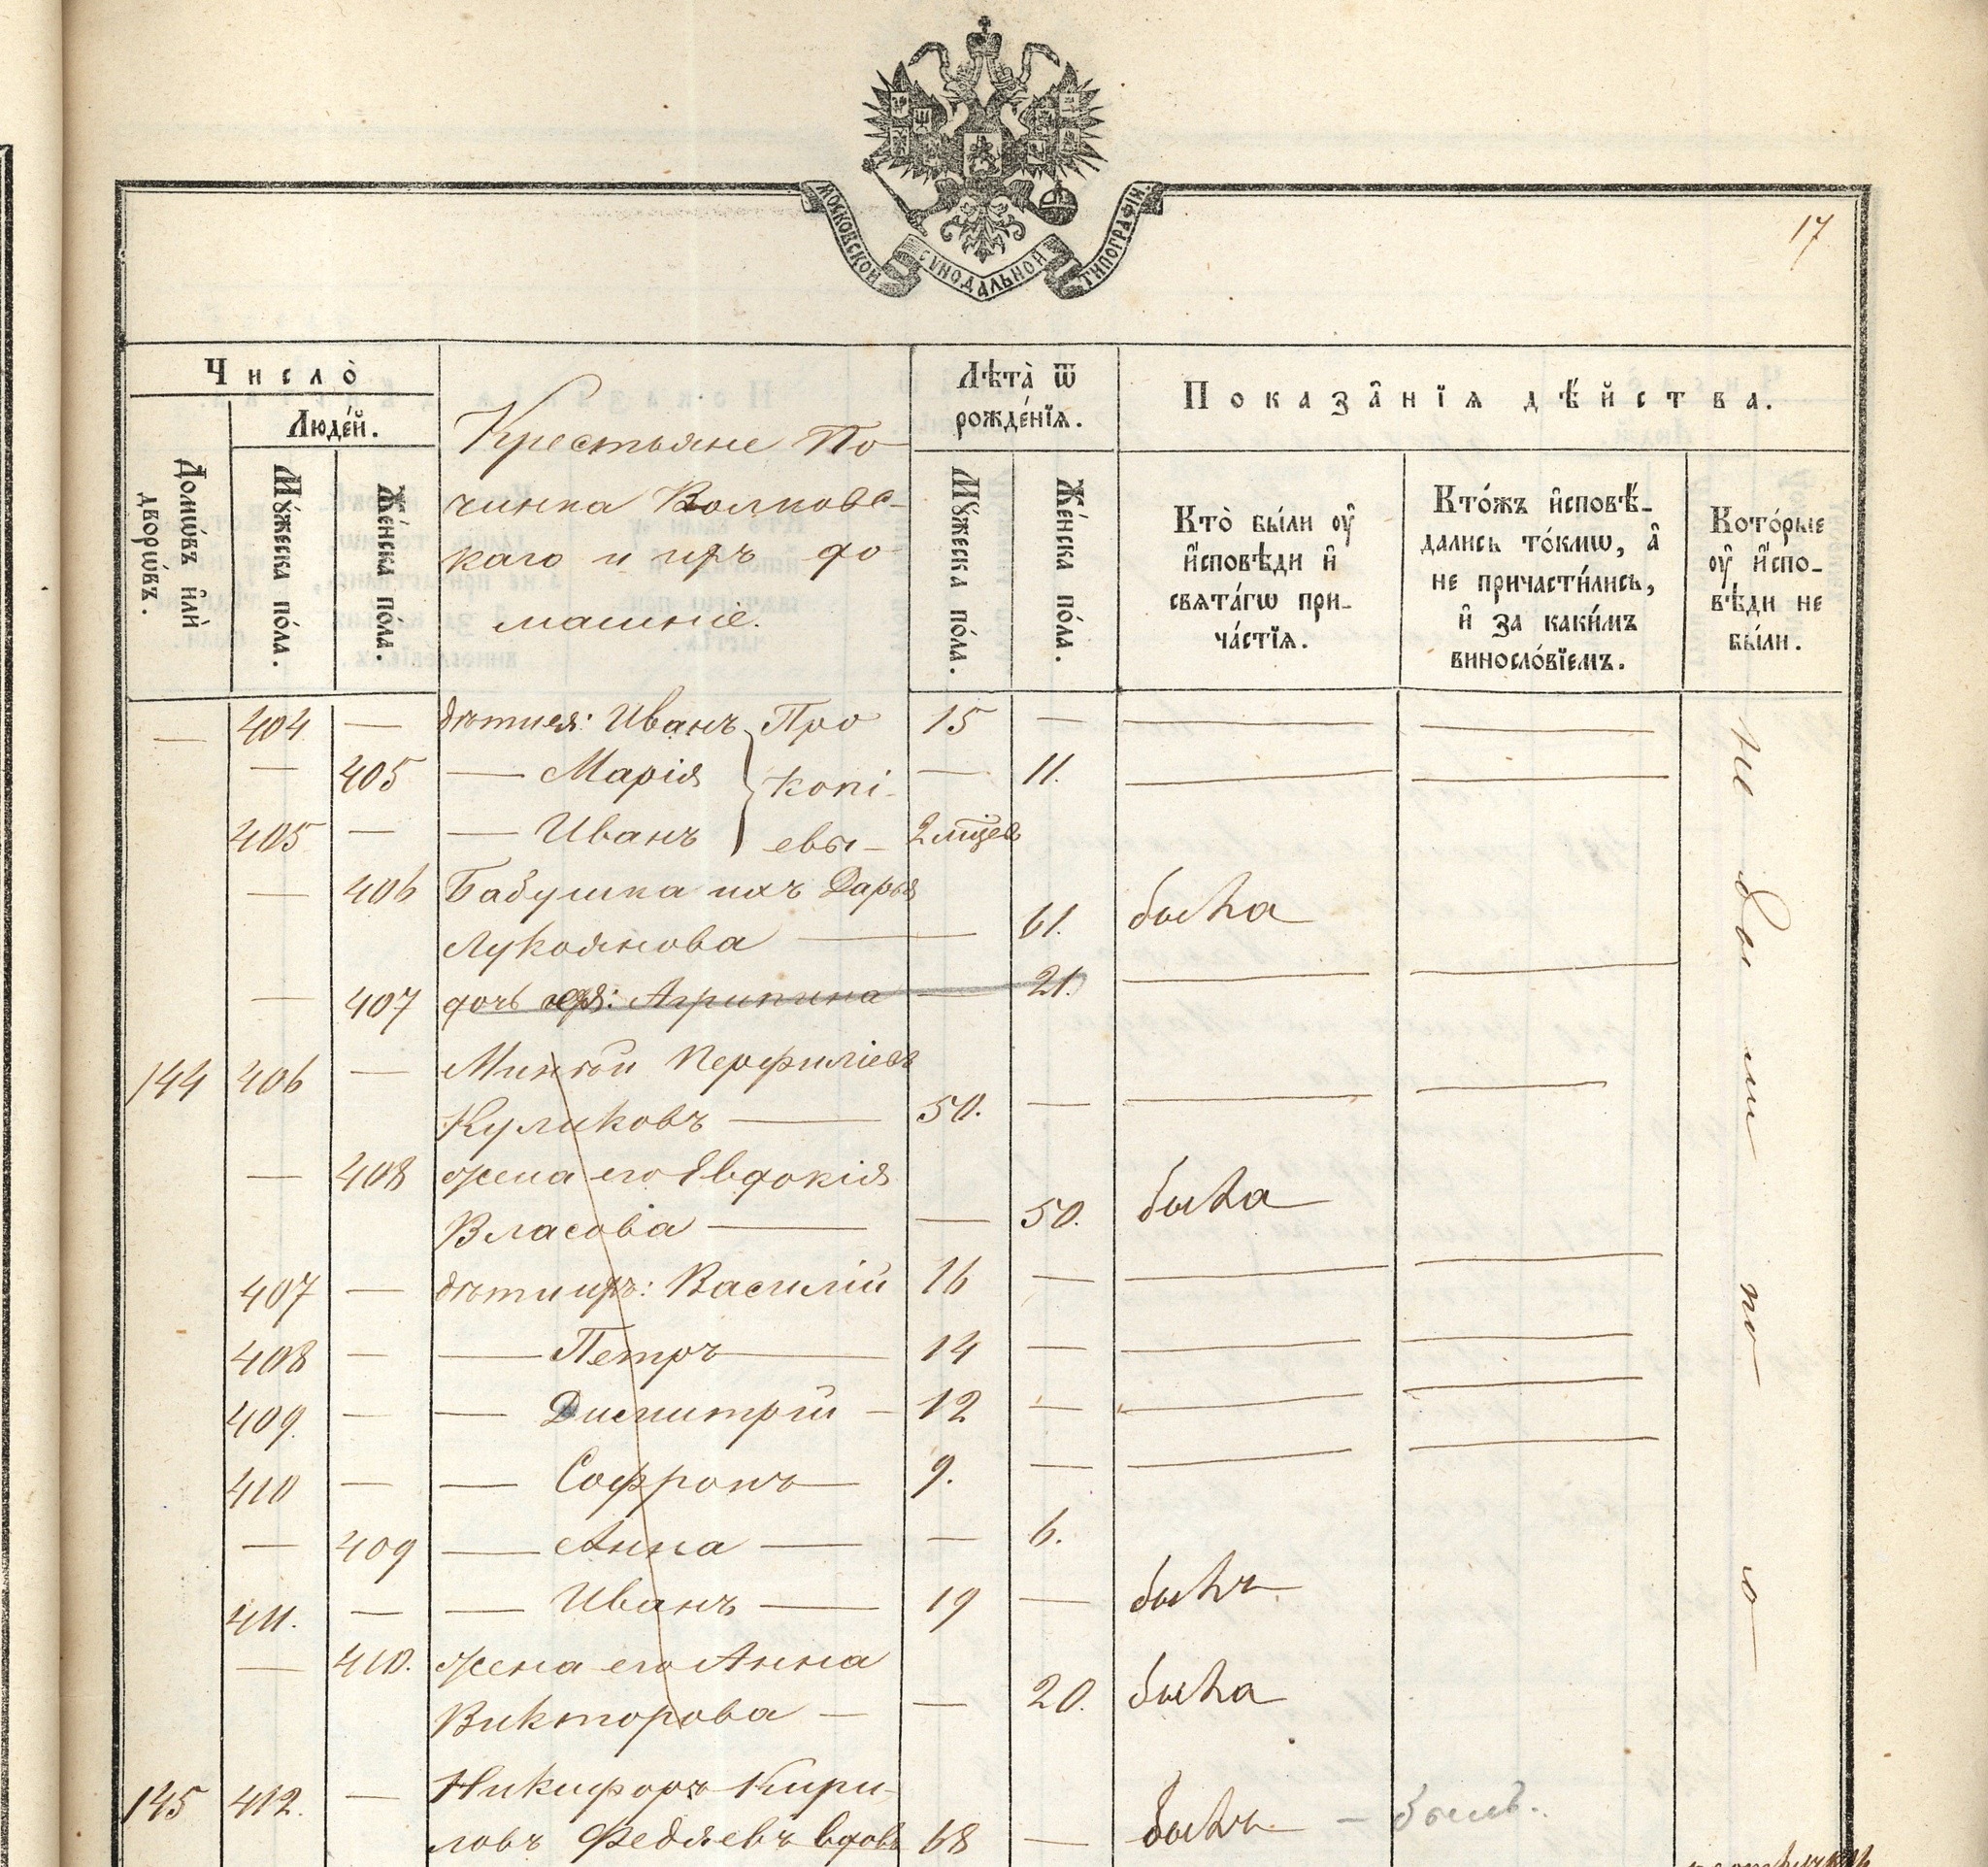 МОСКОВСКОЙ СѴНОДАЛЬНОЙ ТИПОГРАФІИ.
17
Число̀
Людéй.
Домѡ́въ и҆лѝ дворѡ́въ.
Мꙋ́жеска по́ла.
Же́нска по́ла.
Крестьяне По-
чинка Волковс-
каго и ихъ до-
машніе.
Лѣта̀ ѿ
рожде́нїѧ.
Мꙋ́жеска по́ла.
Же́нска по́ла.
Показа̑нїѧ дѣ́йства.
Кто̀ бы́ли ᲂу҆
и҆́сповѣди и҆
свѧта́гѡ при-
ча́стїѧ.
Кто́жъ и҆сповѣ́-
дались то́кмѡ, а҆
не причасти́лись,
и҆ за каки́мъ
виносло́вїемъ.
Кото́рые
ᲂу҆ и҆́спо-
вѣди не
бы́ли.
— 404 — Иванъ Про 15 — — —
— 405 — Марія копі- — 11. — —
405 — — Иванъ евы — 2 мцев
— 406 Бабушка ихъ Дарья
Лукоянова — 61. была
— 407 дочь ея: Агрипина — 21. — —
144 406 — Перфиліевъ
Куликовъ — 50. — — —
— 408 жена его Евдокія
Власова — — 50. была
407 — дѣти ихъ: Василій 16 — — —
408 — — Петръ — 14 — — —
409. — — Димитрій — 12 — — —
410 — — Софронъ — 9. — — —
— 409 — Анна — — 6.
411. — — Иванъ — 19 — былъ
— 410. жена его Анна
Викторова — — 20. была
145 412. — Никифоръ Кири-
ловъ Федяевъ вдовъ 68 — былъ — былъ.
не были по